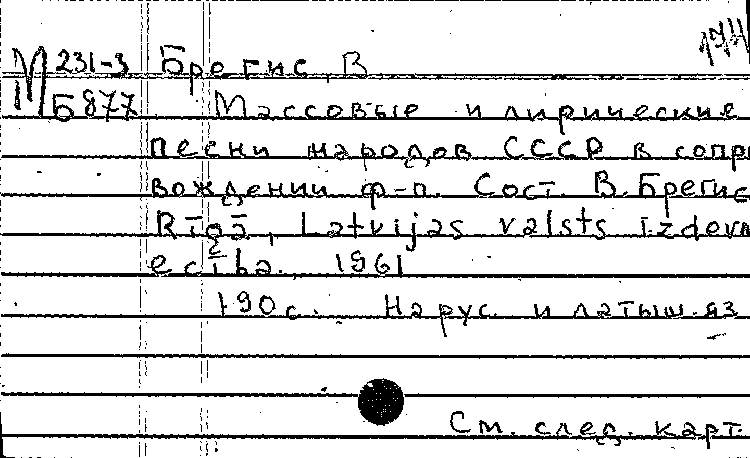 174
М 231-3 Брегис, В
Б877 Массовые и лирические
песни народов СССР в сопро
вождении ф-п. Сост. В. Брегис
Rīgā, Latvijas valsts izdevn
ecība, 1961
190 с. На рус. и латыш. яз
См. след. карт.